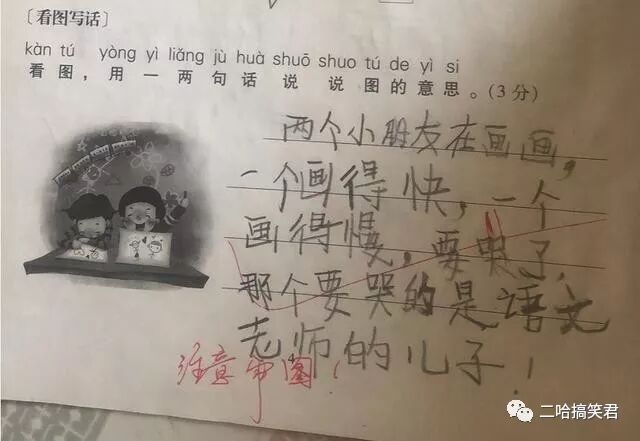 〔看图写话〕
kàn tú yòng yì liǎng jù huà shuō shuo tú de yì si
看图，用一两句话说说图的意思。(3分)
两个小朋友在画画，
一个画得快，一个
画得慢，要哭了，
那个要哭的是语文
老师的儿子！
注意审图！
二哈搞笑君